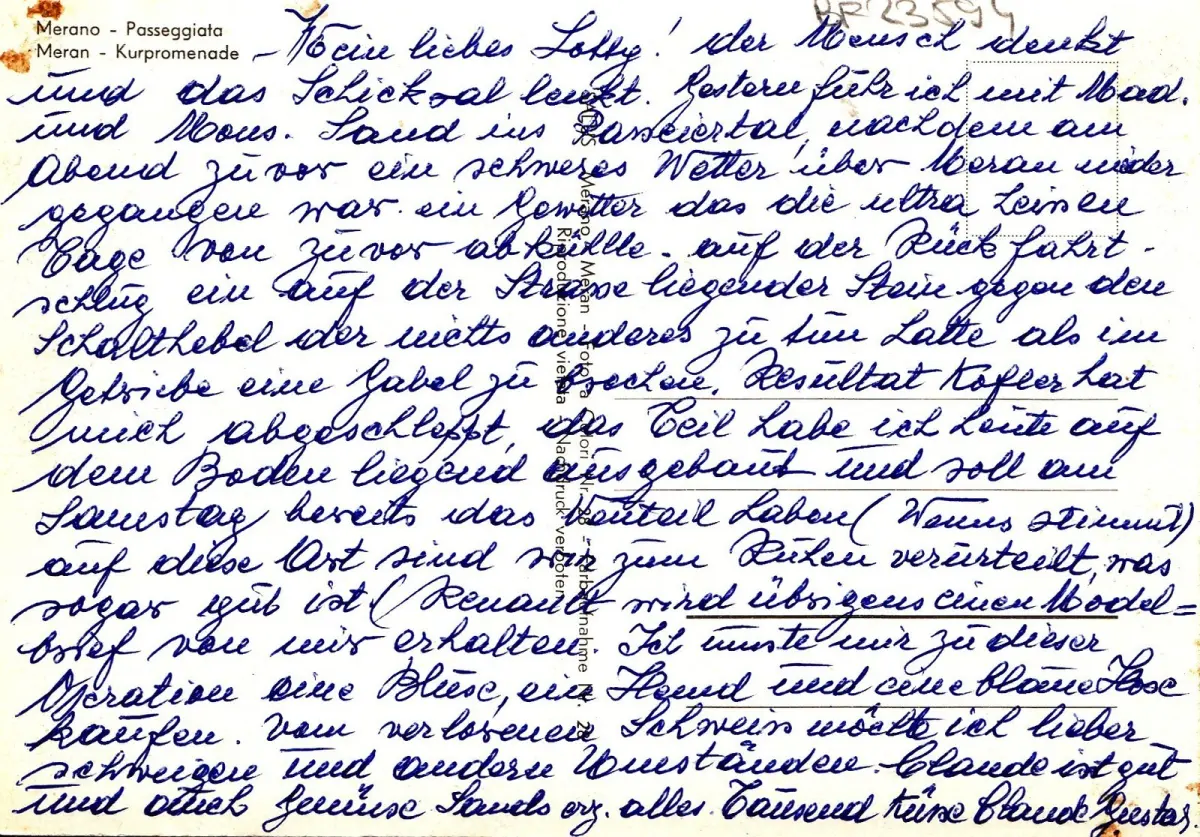 BF23594
Merano - Passeggiata
Meran - Kurpromenade
- Mein liebes Lotty! der Mensch denkt
und das Schicksal lenkt. Gestern fuhr ich mit Mad.
und Mons. Sand ins Passeiertal, nachdem am
Abend zuvor ein schweres Wetter über Meran nieder
gegangen war. ein Gewitter das die ultra heissen
Tage von zuvor abkühlte. auf der Rückfahrt -
schlug ein auf der Strasse liegender Stein gegen den
Schalthebel der nichts anderes zu tun hatte als im
Getriebe eine Gabel zu brechen. Resultat Kofler hat
mich abgeschleppt, das Teil habe ich heute auf
dem Boden liegend ausgebaut und soll am
Samstag bereits das Neuteil haben (Wenns stimmt)
auf diese Art sind wir zum Ruhen verurteilt, was
sogar gut ist. (Renault wird übrigens einen Model=
brief von mir erhalten. Ich musste mir zu dieser
Operation eine Bluse, ein Hemd und eine blaue Hose
kaufen. Vom verlorenen Schweiss möcht ich lieber
schweigen und andern Umständen. Claude ist gut
und auch Sands erz. alles. Tausend Küsse Claude Gustav.
Merano - Meran - Foto
Riproduzione vietata - Nachdruck verboten